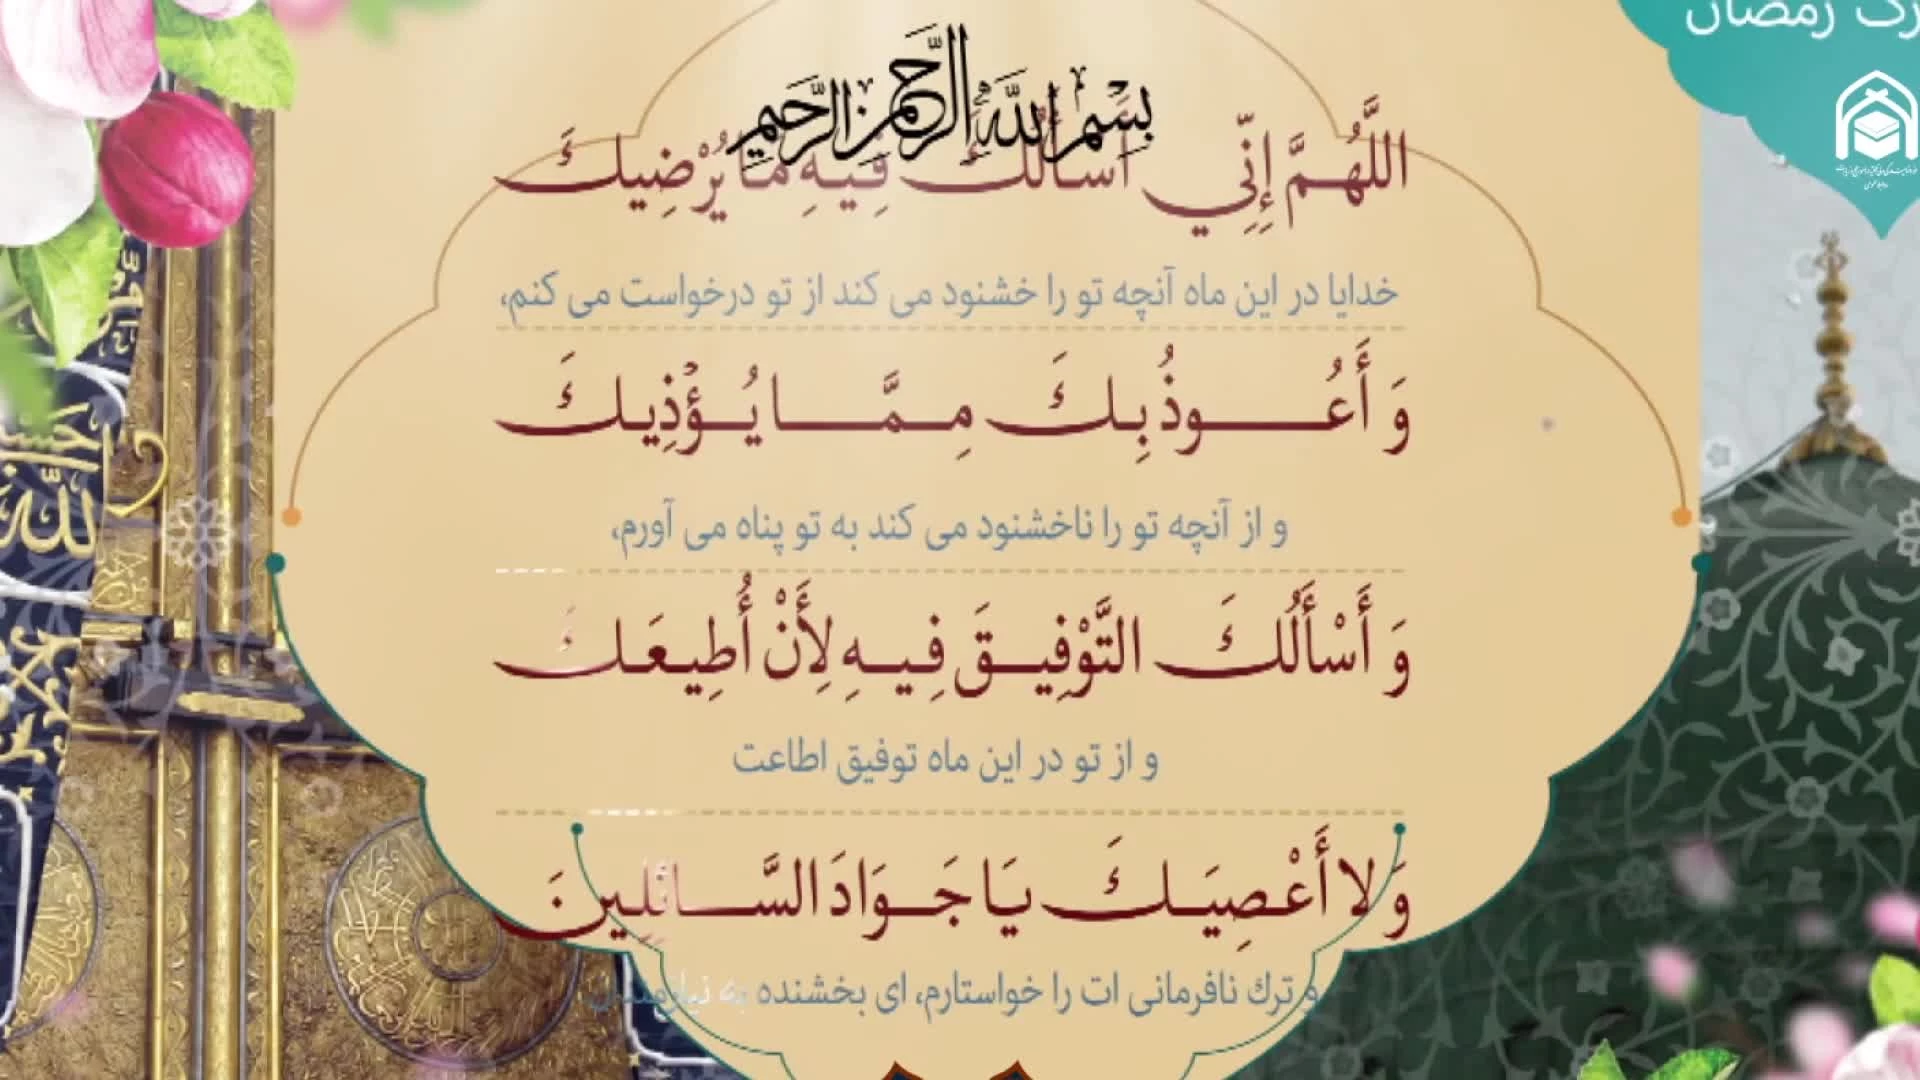 رک رمضان
بِسْمِ اللَّهِ الرَّحْمنِ الرَّحیمِ
اللَّهُمَّ إِنِّي أَسْأَلُكَ فِيهِ مَا يُرْضِيكَ
خدایا در این ماه آنچه تو را خشنود می کند از تو درخواست می کنم،
وَ أَعُوذُ بِكَ مِمَّا يُؤْذِيكَ
و از آنچه تو را ناخشنود می کند به تو پناه می آورم،
وَ أَسْأَلُكَ التَّوْفِيقَ فِيهِ لِأَنْ أُطِيعَكَ
و از تو در این ماه توفیق اطاعت
وَ لا أَعْصِيَكَ يَا جَوَادَ السَّائِلِينَ
و ترك نافرمانی ات را خواستارم، ای بخشنده به نیازمندان